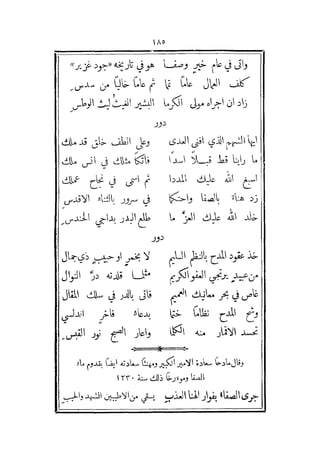 ١٨٥
واتى في عام خير وصفـا هو في تاريخه «جود غزير»
كلف العمال عامًا تمّا ثم عامًا خاليًا من سدس
زاد ان اجراه مولى الكرما البشير الغيث ليث الوطس
دور
ايها الشهم الذي افنى العدى وعلى الطف خلق قد ملك
ما راينا قط قبـلًا اسدًا فاتكًا مثلك في انس ملك
اسبغ الله عليك المددا ثم امسى في نجاح عملك
زد هناء بالصفا واحتكما في سرور بالثناء الاقدس
خلد الله عليك العز ما طلع البدر بداجي الحندس
دور
خذ عقود المدح بالنظم السليم لا بخمر او حبيب ذي جمال
من عبيد يرتجي العفو الكريم مثلما قلدته درّ النوال
غاص في بحر معانيك العميم فاتى بالدر في سلك المقال
وشح المدح نظامًا ختما بدعاء فاخر اندلسي
تحسد الاقمار منه الكلما واعار الصبح نور القبس
وقال مادحًا سعادة الامير الكبير ومهنئًا سعادته ايضًا بقدوم ماء
الصفا ومؤرخًا ذلك سنة ١٢٣٠
جرى الصفاء بفوار الهنا العذب يسقي من الاطيبين الشهد والحبب